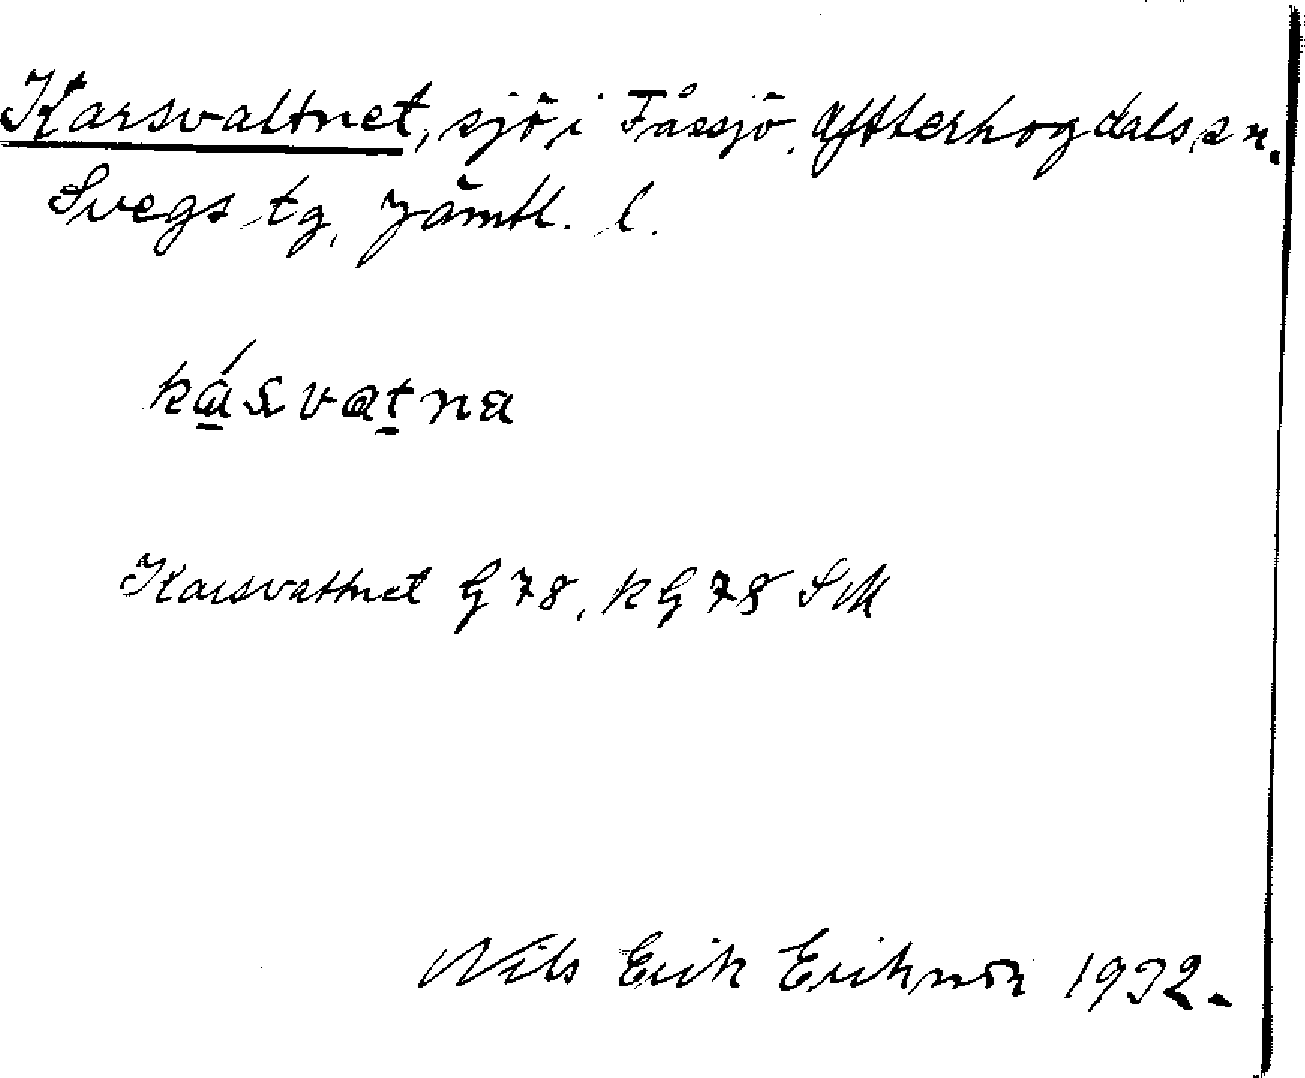 Karsvattnet, sjö i Fåssjö, Ytterhogdals sn.
Svegs tg, Jämtl. l.
kásvatna
Karsvattnet G 78, k G 78 SM
Nils Erik Erikson 1932.